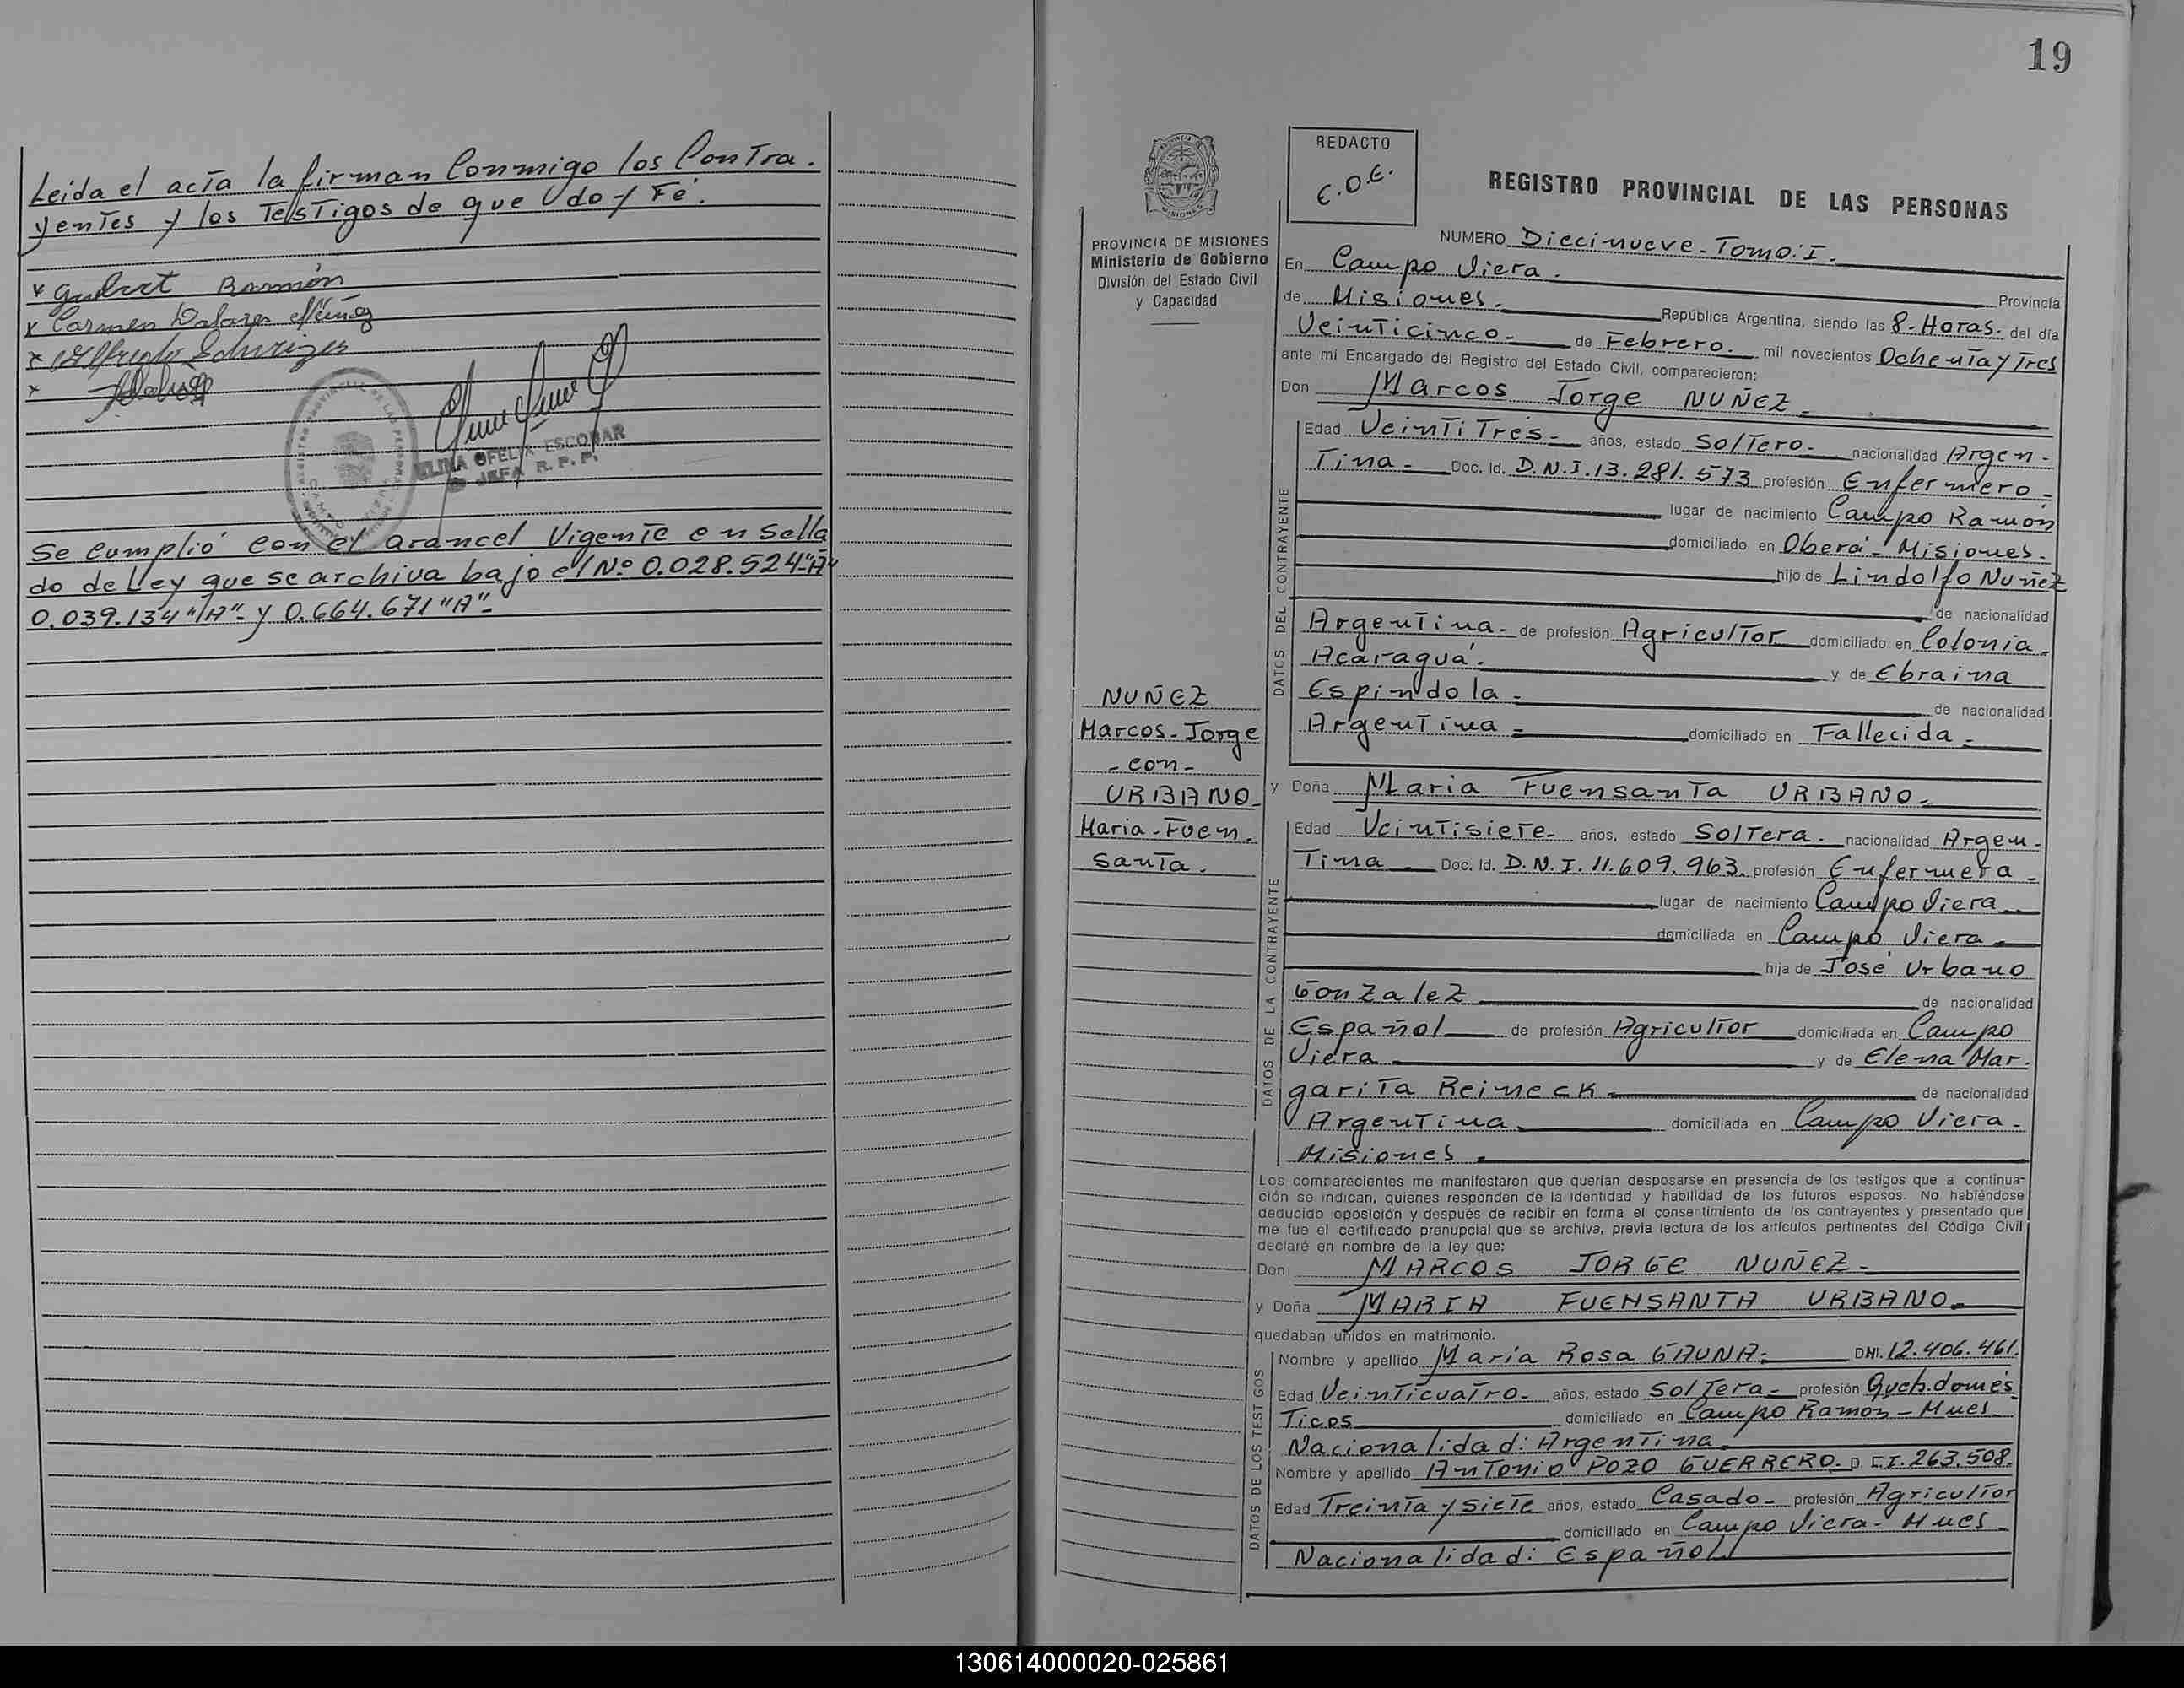 Leida el acta la firman Conmigo los Contra.
yentes y los Testigos de que doy Fé.
x Ramón
x Carmen Dolores Núñez
x Wilfredo
x
ELINA OFELIA ESCOBAR
JEFA R. P. P.
Se Cumplió con el arancel Vigente en Sella
do de Ley que se archiva bajo el Nº 0.028.524"A"
0.039.134 "A" y 0.664.671 "A".
19
REDACTO
E.O.E.
MISIONES
PROVINCIA DE MISIONES
Ministerio de Gobierno
División del Estado Civil
y Capacidad
NUÑEZ
Marcos-Jorge
-con-
URBANO-
Maria-Fuen-
santa.
REGISTRO PROVINCIAL DE LAS PERSONAS
NUMERO Diecinueve-Tomo:I.
En Campo Viera. Provincia
de Misiones. República Argentina, siendo las 8-Horas. del día
Veinticinco- de Febrero. mil novecientos Ochenta y Tres
ante mi Encargado del Registro del Estado Civil, comparecieron:
Don Marcos Jorge NUÑEZ-
DATOS DEL CONTRAYENTE
Edad VeintiTrés- años, estado Soltero- nacionalidad Argen-
Tina- Doc. Id. D.N.I.13.281.573 profesión Enfermero-
lugar de nacimiento Campo Ramón
domiciliado en Oberá-Misiones-
hijo de Lindolfo Nuñez
de nacionalidad
Argentina- de profesión Agricultor domiciliado en Colonia-
Acaraguá. y de Ebraina
Espindola- de nacionalidad
Argentina- domiciliado en Fallecida-
y Doña Maria Fuensanta URBANO-
DATOS DE LA CONTRAYENTE
Edad Veintisiete- años, estado Soltera- nacionalidad Argen-
Tina- Doc. Id. D.N.I. 11.609.963. profesión Enfermera-
lugar de nacimiento Campo Viera
domiciliada en Campo Viera-
hija de José Urbano
Gonzalez de nacionalidad
Español de profesión Agricultor domiciliada en Campo
Viera y de Elena Mar-
garita Reineck- de nacionalidad
Argentina- domiciliada en Campo Viera-
Misiones-
Los comparecientes me manifestaron que querían desposarse en presencia de los testigos que a continua-
ción se indican, quienes responden de la identidad y habilidad de los futuros esposos. No habiéndose
deducido oposición y después de recibir en forma el consentimiento de los contrayentes y presentado que
me fue el certificado prenupcial que se archiva, previa lectura de los artículos pertinentes del Código Civil
declaré en nombre de la ley que:
Don MARCOS JORGE NUÑEZ-
y Doña MARIA FUENSANTA URBANO-
quedaban unidos en matrimonio.
DATOS DE LOS TESTIGOS
Nombre y apellido Maria Rosa GAUNA- DNI. 12.406.461.
Edad Veinticuatro- años, estado Soltera- profesión Queh.domés
Ticos domiciliado en Campo Ramón-Mnes-
Nacionalidad: Argentina-
Nombre y apellido Antonio POZO GUERRERO. D. C.I. 263.508.
Edad Treinta y siete años, estado Casado- profesión Agricultor
domiciliado en Campo Viera- Mnes-
Nacionalidad: Español
130614000020-025861